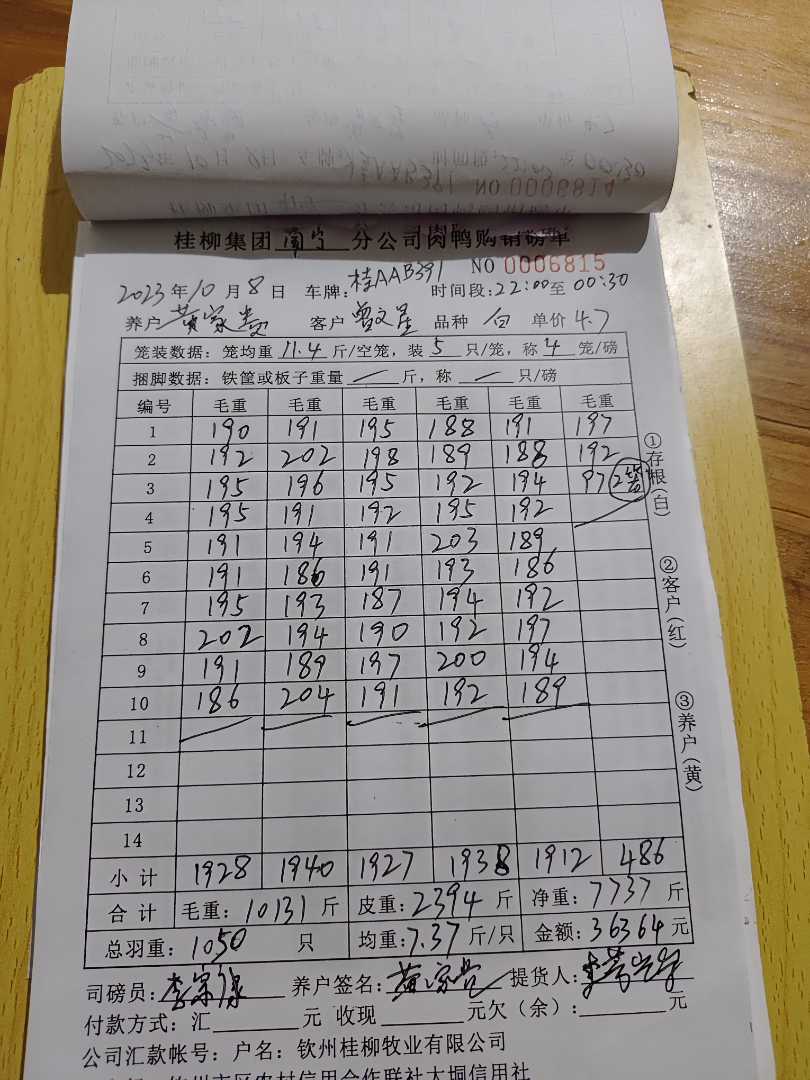 NO 0006814
桂柳集团 南宁 分公司肉鸭购销磅单
NO 0006815
2023年10月8日 车牌:桂AAB391 时间段:22:00至00:30
养户 黄家 客户 曾文星 品种 白 单价 4.7
笼装数据: 笼均重 11.4 斤/空笼, 装 5 只/笼, 称 4 笼/磅
捆脚数据: 铁筐或板子重量 / 斤, 称 / 只/磅
编号 毛重 毛重 毛重 毛重 毛重 毛重
1 190 191 195 188 191 197
2 192 202 198 189 188 192
3 195 196 195 192 194 97 2笼
4 195 191 192 195 192
5 191 194 191 203 189
6 191 186 191 193 186
7 195 193 187 194 192
8 202 194 190 192 197
9 191 189 197 200 194
10 186 204 191 192 189
11
12
13
14
小计 1928 1940 1927 1938 1912 486
合计 毛重: 10131 斤 皮重: 2394 斤 净重: 7737 斤
总羽重: 1050 只 均重: 7.37 斤/只 金额: 36364 元
司磅员: 李 养户签名: 黄家 提货人:
付款方式: 汇 元 收现 元欠(余): 元
公司汇款帐号: 户名: 钦州桂柳牧业有限公司
钦州市区农村信用合作联社大垌信用社
①存根(白)
②客户(红)
③养户(黄)